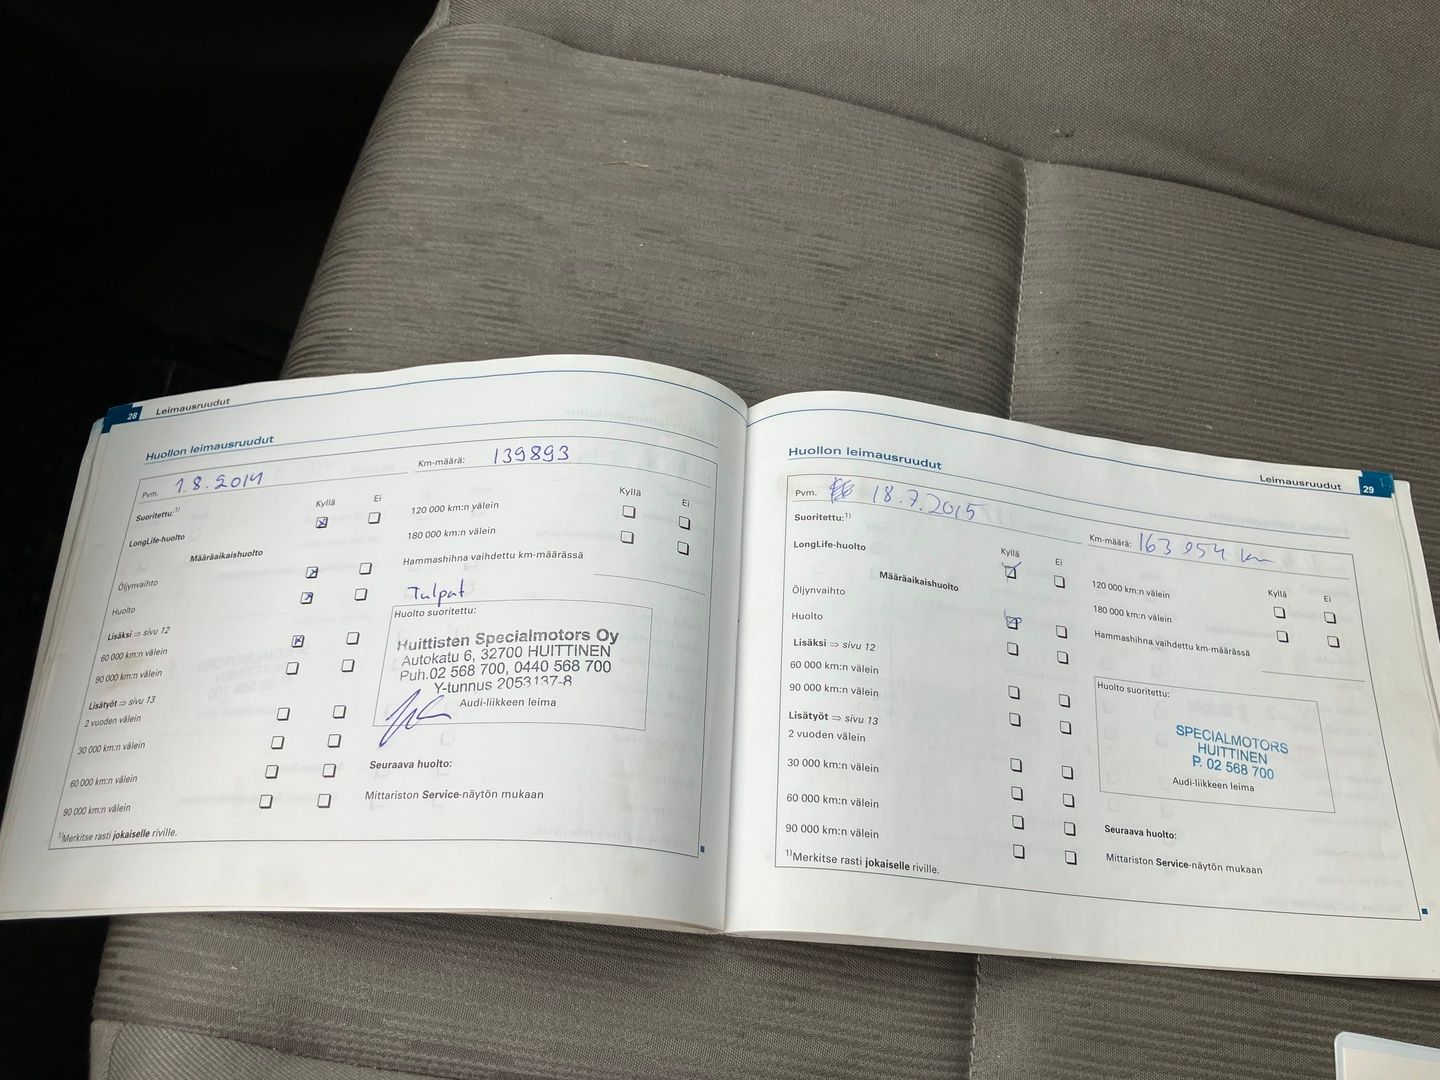 28 Leimausruudut
Huollon leimausruudut
Pvm. 1.8.2014
Km-määrä: 139893
Suoritettu:1)
Kyllä Ei
LongLife-huolto
Määräaikaishuolto
Öljynvaihto
Huolto
Lisäksi ⇒ sivu 12
60 000 km:n välein
90 000 km:n välein
Lisätyöt ⇒ sivu 13
2 vuoden välein
30 000 km:n välein
60 000 km:n välein
90 000 km:n välein
1)Merkitse rasti jokaiselle riville.
Kyllä Ei
120 000 km:n välein
180 000 km:n välein
Hammashihna vaihdettu km-määrässä
Tulpat
Huolto suoritettu:
Huittisten Specialmotors Oy
Autokatu 6, 32700 HUITTINEN
Puh.02 568 700, 0440 568 700
Y-tunnus 2053137-8
Audi-liikkeen leima
Seuraava huolto:
Mittariston Service-näytön mukaan
Leimausruudut 29
Huollon leimausruudut
Pvm. 18.7.2015
Km-määrä: 163 954 km
Suoritettu:1)
Kyllä Ei
LongLife-huolto
Määräaikaishuolto
Öljynvaihto
Huolto
Lisäksi ⇒ sivu 12
60 000 km:n välein
90 000 km:n välein
Lisätyöt ⇒ sivu 13
2 vuoden välein
30 000 km:n välein
60 000 km:n välein
90 000 km:n välein
1)Merkitse rasti jokaiselle riville.
Kyllä Ei
120 000 km:n välein
180 000 km:n välein
Hammashihna vaihdettu km-määrässä
Huolto suoritettu:
SPECIALMOTORS
HUITTINEN
P. 02 568 700
Audi-liikkeen leima
Seuraava huolto:
Mittariston Service-näytön mukaan